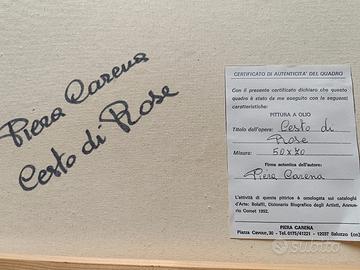 Piera Carena
Cesto di Rose
CERTIFICATO DI AUTENTICITA' DEL QUADRO
Con il presente certificato dichiaro che questo
quadro è stato da me eseguito con le seguenti
caratteristiche:
PITTURA A OLIO
Titolo dell'opera: Cesto di
Rose
Misura: 50x70
Firma autentica dell'autore:
Piera Carena
L'attività di questa pittrice è omologata sui cataloghi
d'Arte: Bolaffi, Dizionario Biografico degli Artisti, Annua-
rio Comet 1992.
PIERA CARENA
Piazza Cavour, 30 - Tel. 0175/41221 - 12037 Saluzzo (cn)
subito